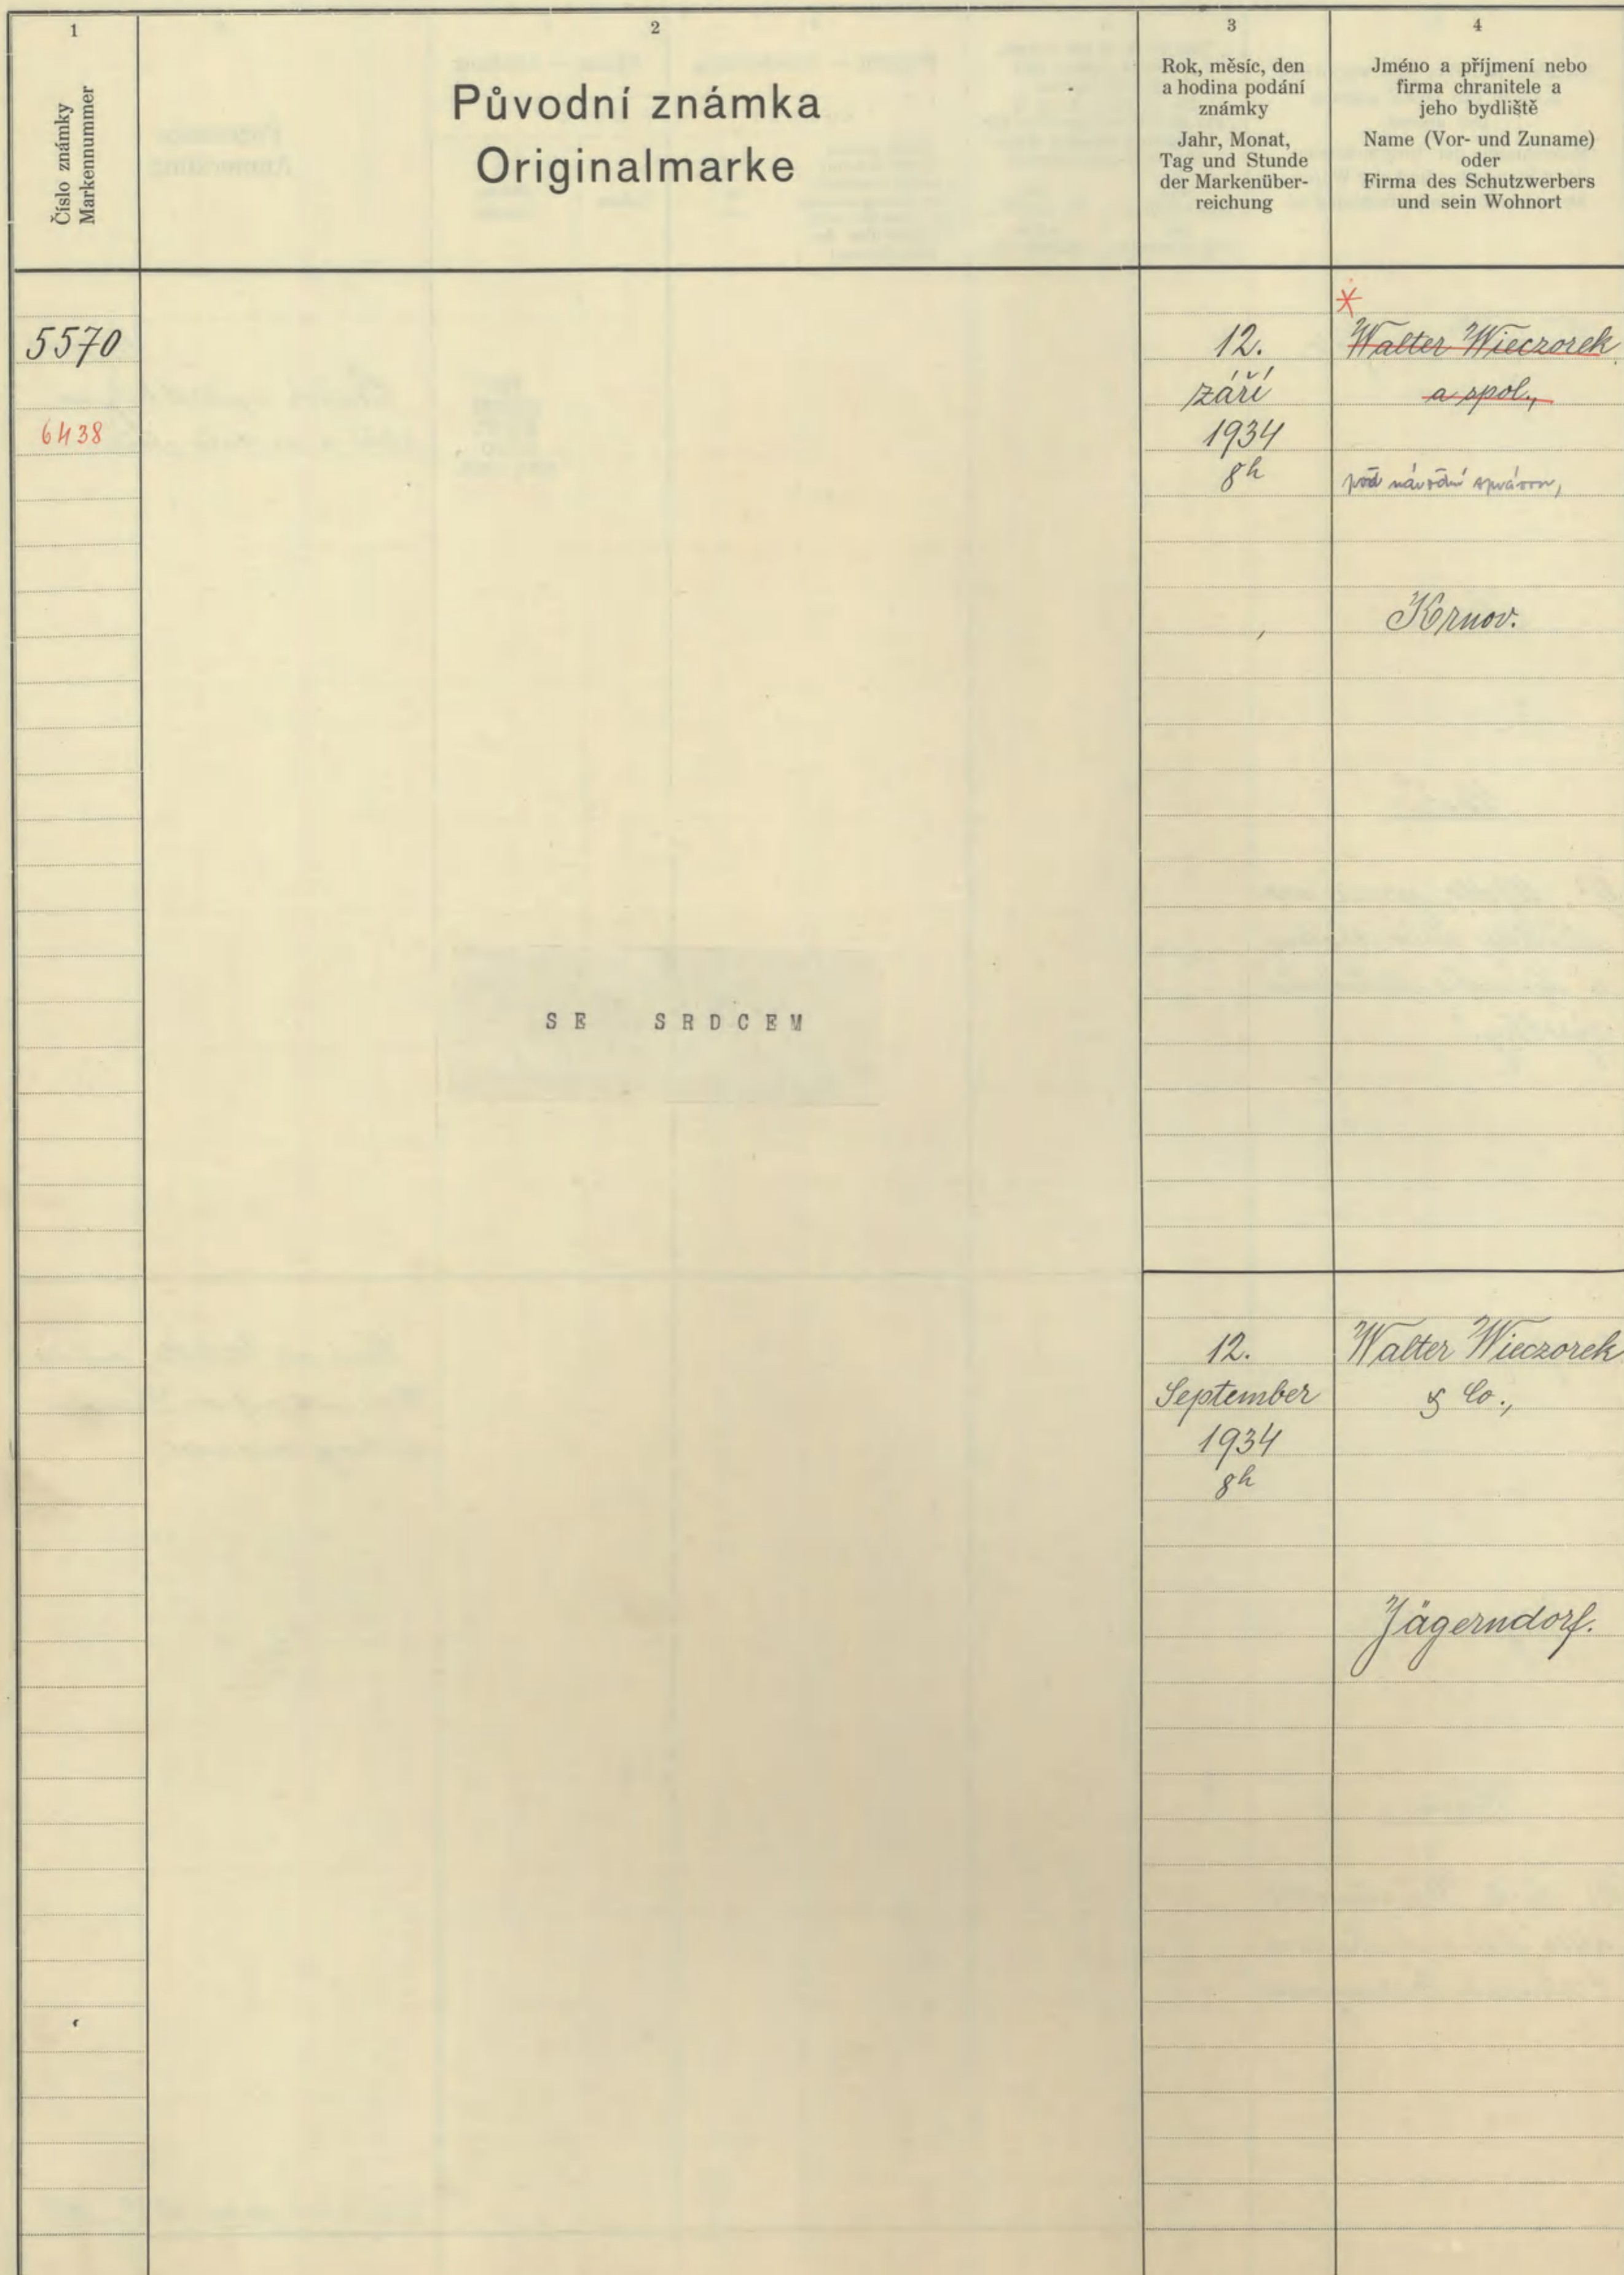 1
Číslo známky
Markennummer
2
Původní známka
Originalmarke
3
Rok, měsíc, den
a hodina podání
známky
Jahr, Monat,
Tag und Stunde
der Markenüber-
reichung
4
Jméno a příjmení nebo
firma chranitele a
jeho bydliště
Name (Vor- und Zuname)
oder
Firma des Schutzwerbers
und sein Wohnort
5570
6438
SE SRDCEM
12.
září
1934
8h
*
Walter Wieczorek
a spol.,
pod národní správou,
Krnov.
12.
September
1934
8h
Walter Wieczorek
& Co.,
Jägerndorf.